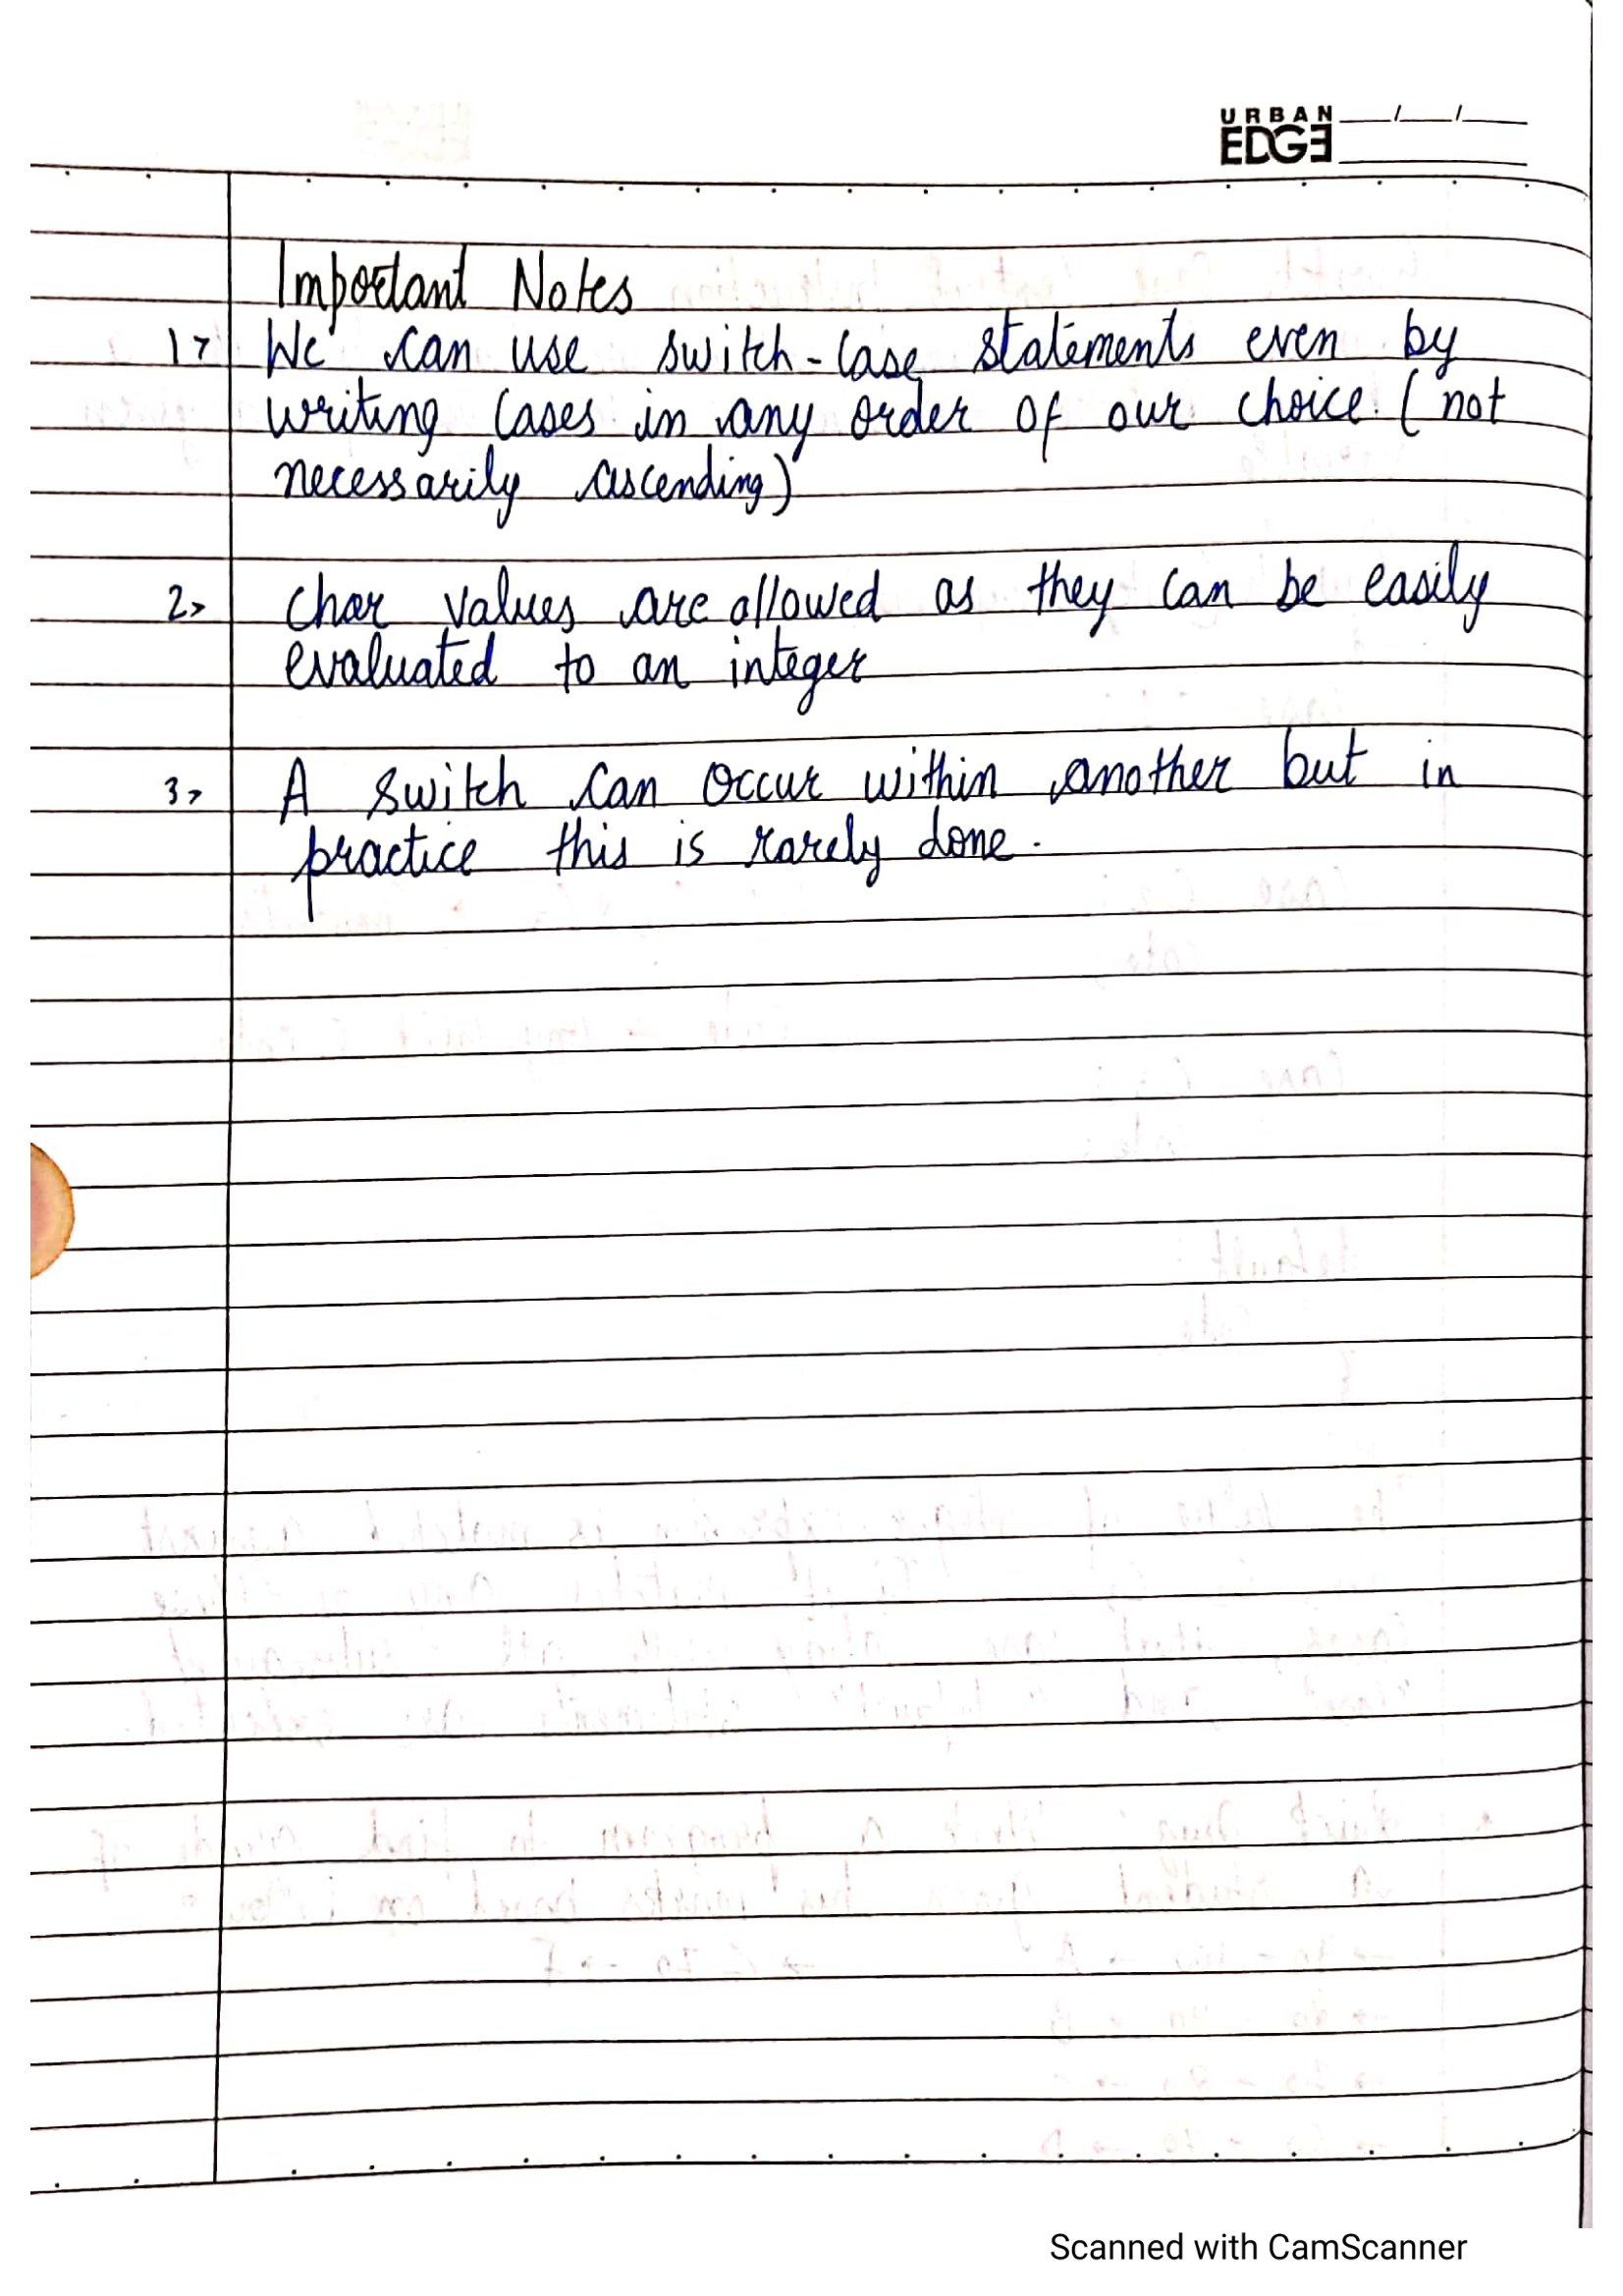 URBAN
EDGE
Important Notes
1> We can use switch-case statements even by
writing cases in any order of our choice. (not
necessarily ascending)
2> char values are allowed as they can be easily
evaluated to an integer
3> A switch can occur within another but in
practice this is rarely done.
Scanned with CamScanner